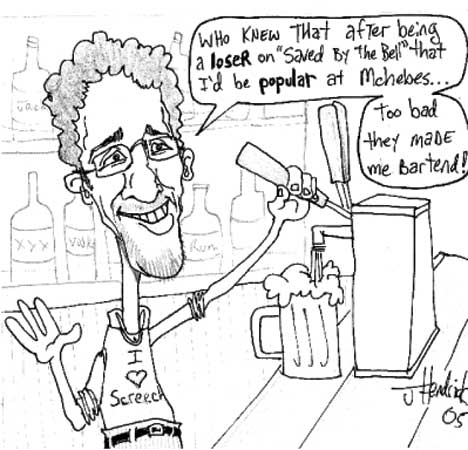 Who knew that after being
a loser on "Saved By The Bell" that
I'd be popular at Mchebes...
Too bad
they made
me Bartend!
Jack
XYX
Vodka
Rum
I
♡
Screech
JHendrick
05